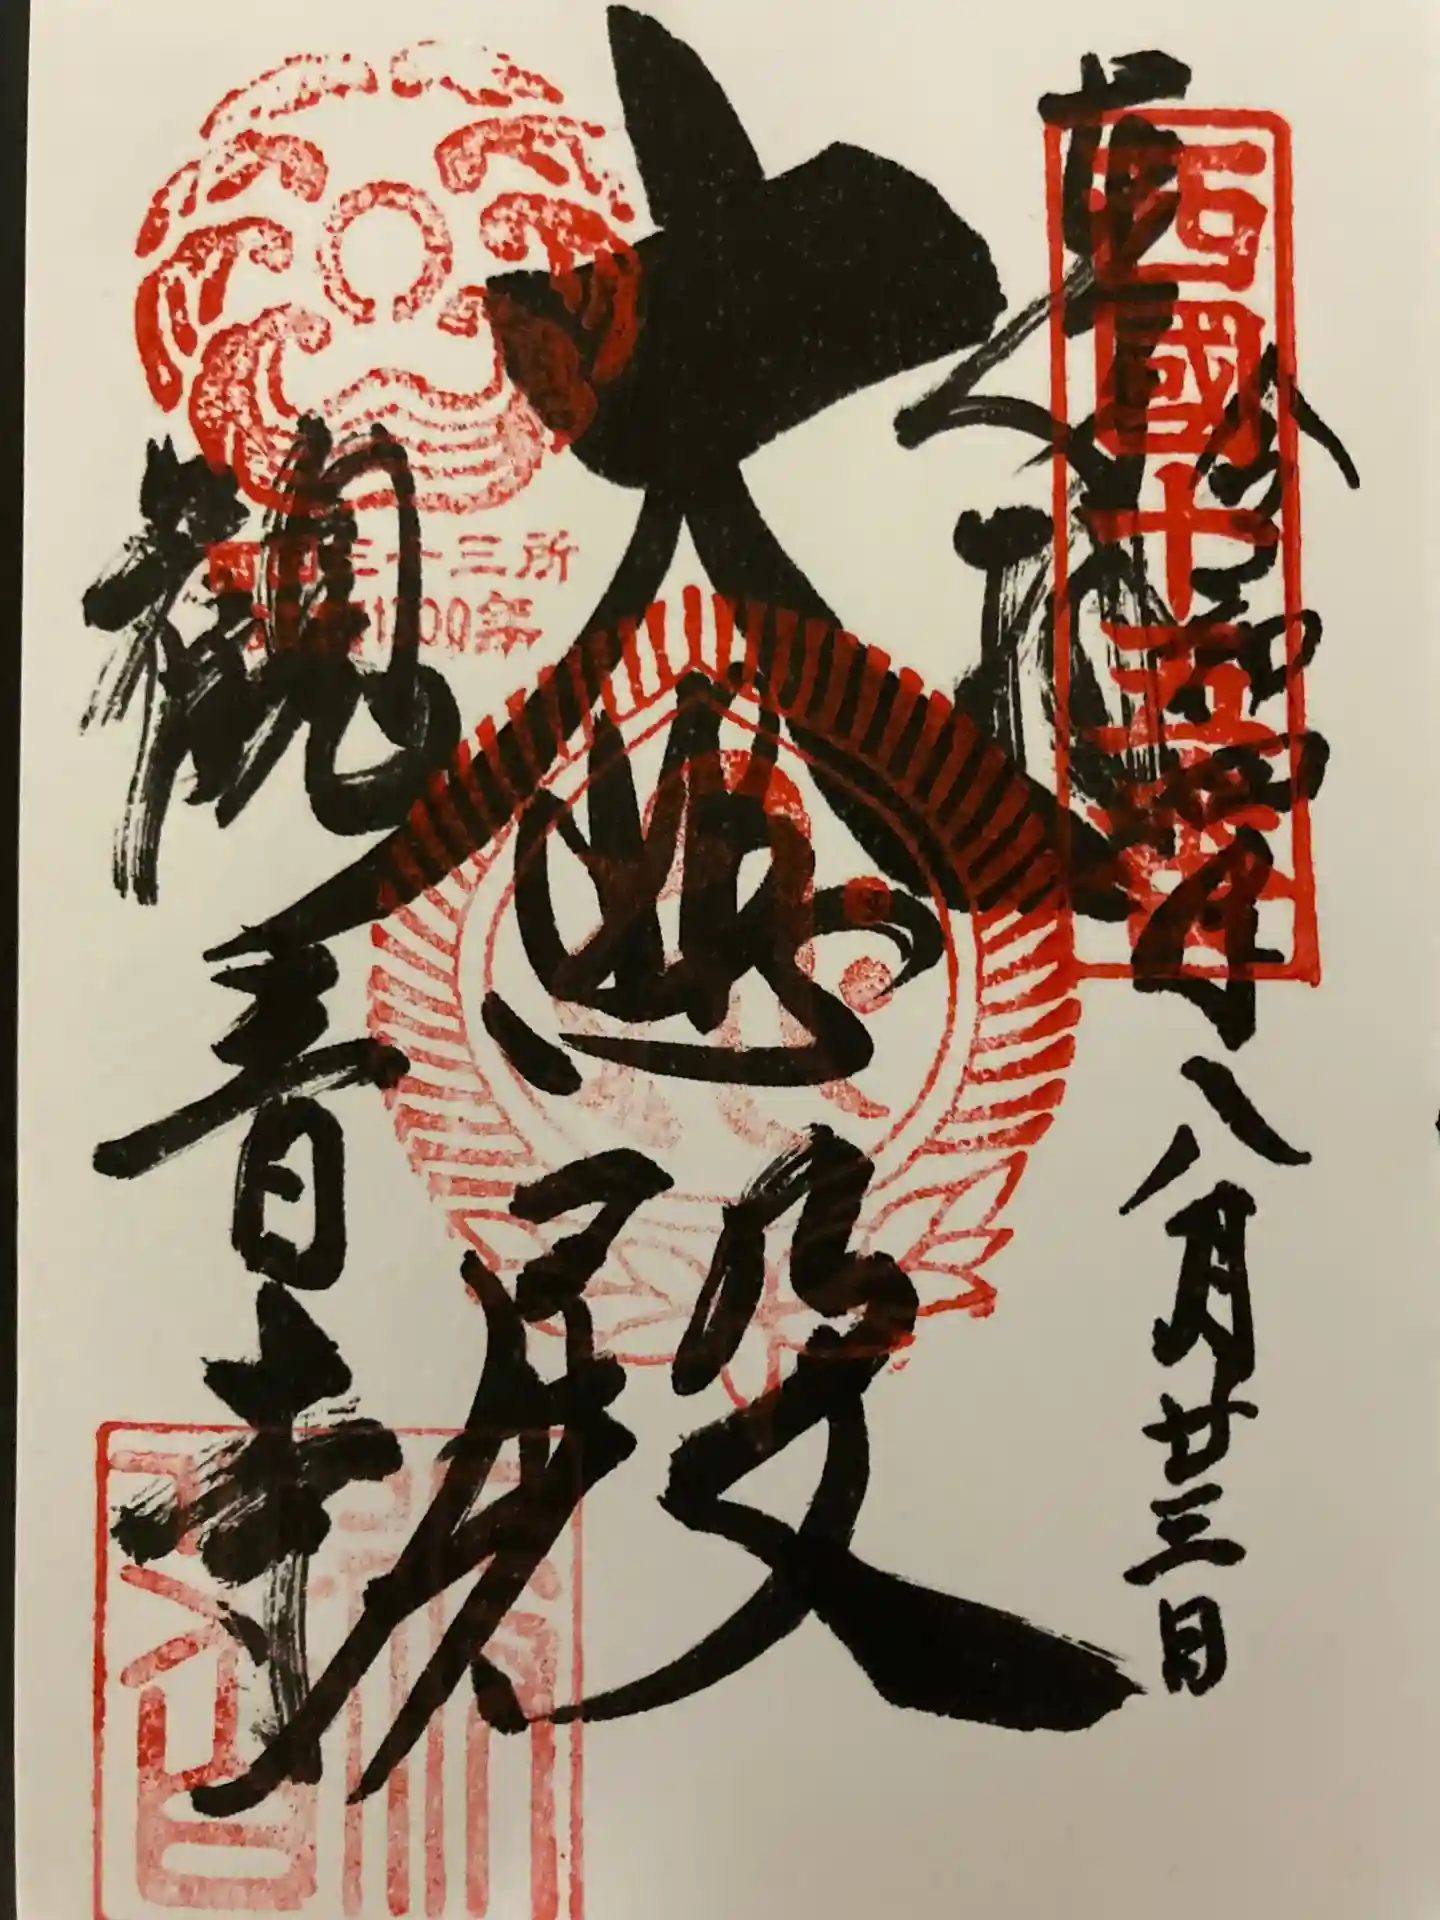 西國十五番
奉拝
令和四年八月廿三日
大悲殿
西国三十三所
草創1300年
観音寺